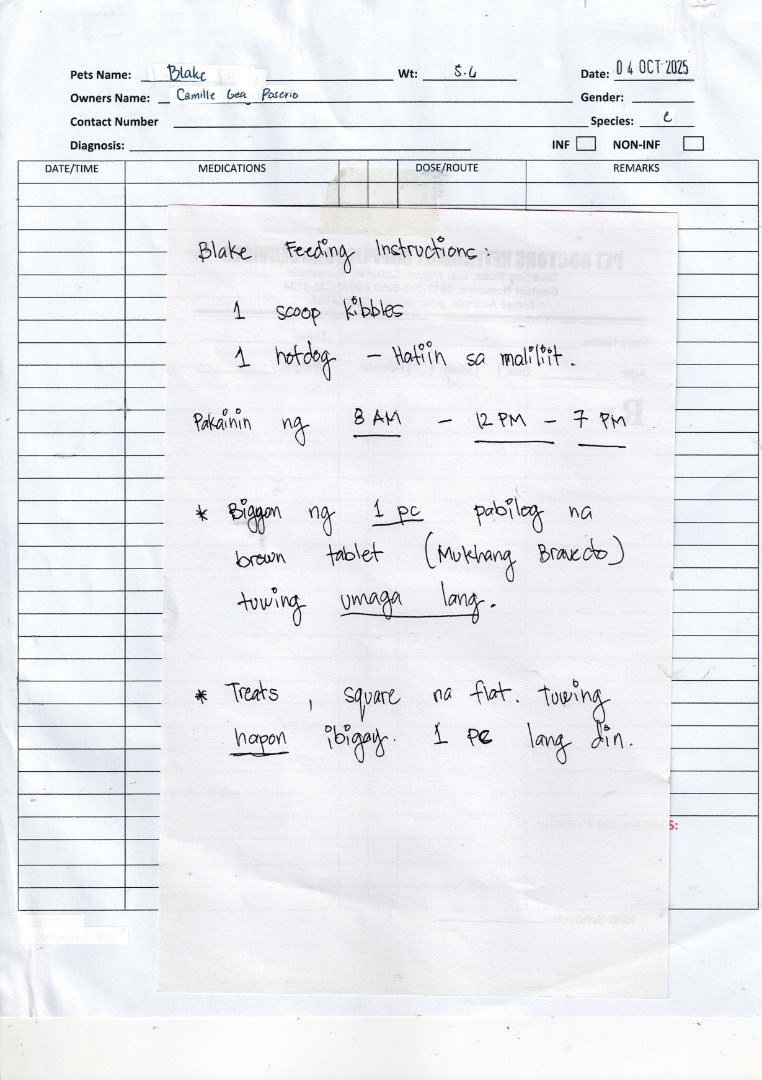 Pets Name: Blake Wt: 5.6 Date: 04 OCT 2025
Owners Name: Camille Gea Poserio Gender:
Contact Number Species: C
Diagnosis: INF NON-INF
DATE/TIME MEDICATIONS DOSE/ROUTE REMARKS
Blake Feeding Instructions:
1 scoop kibbles
1 hotdog - Hatiin sa maliliit.
Pakainin ng 8 AM - 12 PM - 7 PM
* Biggan ng 1 pc pabilog na
brown tablet (Mukhang Bravecto)
tuwing umaga lang.
* Treats, square na flat. tuwing
hapon ibigay. 1 pc lang din.
S: